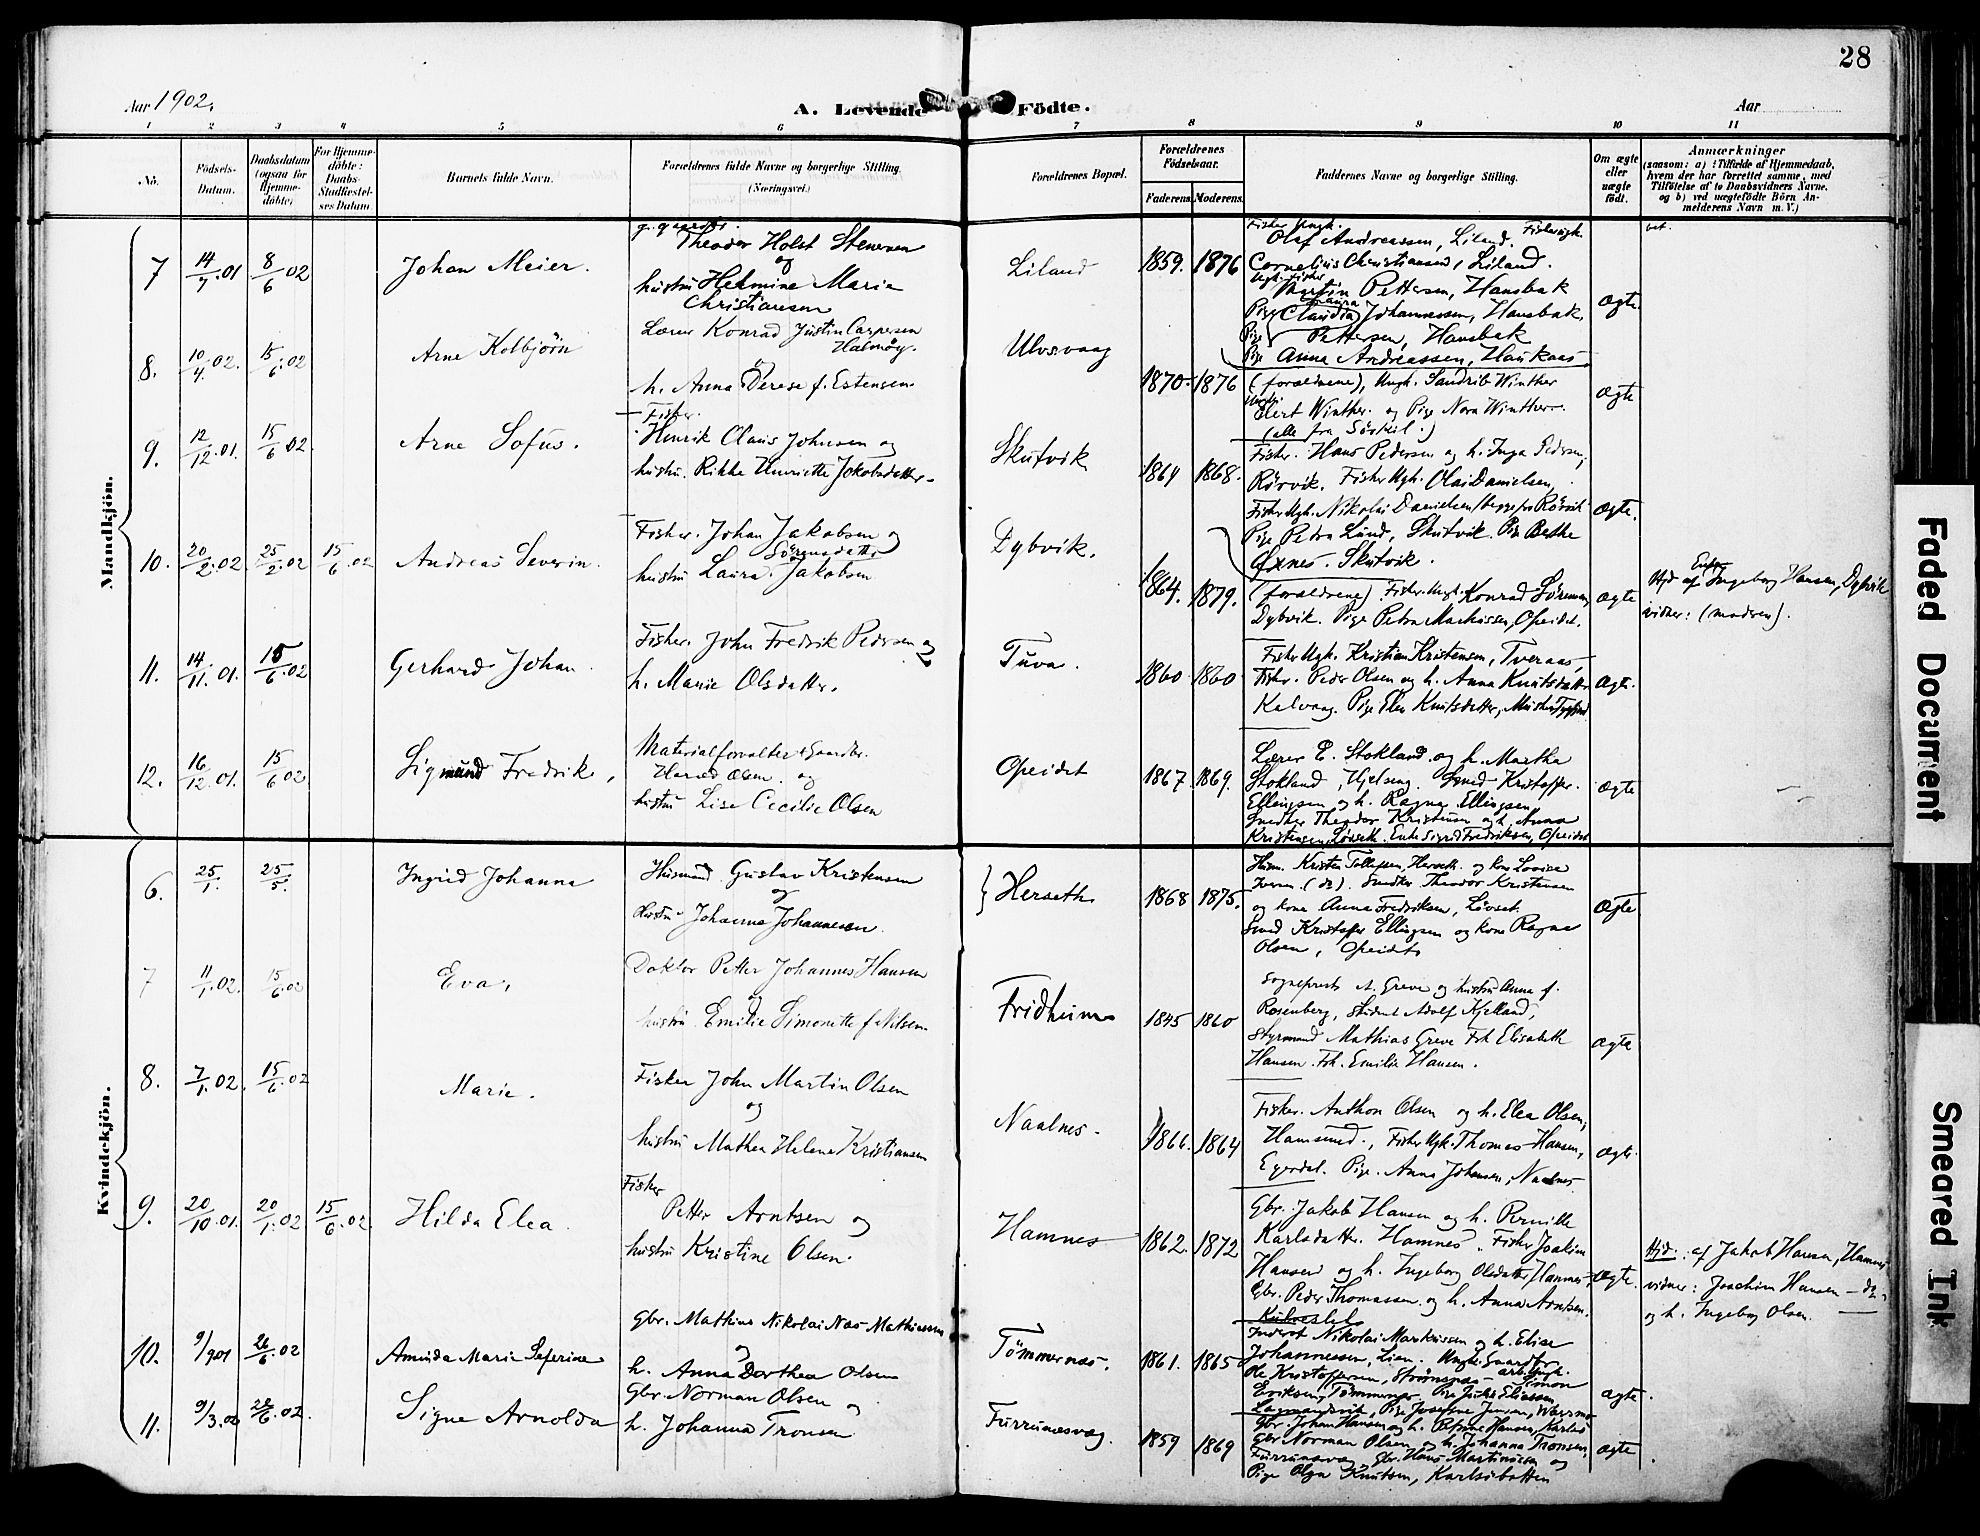 28
Aar 1902.
A. Levende Födte.
Aar
1 2 3 4 5 6 7 8 9 10 11
No.
Födsels-
Datum.
Daabsdatum
(ogsaa for
Hjemme-
döbte)
For Hjemme-
döbte:
Daabs-
Stadfæstel-
ses Datum.
Barnets fulde Navn.
Forældrenes fulde Navne og borgerlige Stilling.
(Næringsvei.)
Forældrenes Bopæl.
Forældrenes
Födselsaar.
Faderens. Moderens.
Faddernes Navne og borgerlige Stilling.
Om ægte
eller
uægte
født.
Anmærkninger
(saasom: a) i Tilfælde af Hjemmedaab,
hvem der har forrettet samme, med
Tilföielse af to Daabsvidners Navne,
og b) ved uægtefödte Börn An-
melderens Navn m. V.)
Mandkjön.
7 14/7 01 8/6 02
Johan Meier.
Theodor Holst Stenersen
og
hustru Helmine Marie
Christiansen
Liland
1859. 1876
Fisker Ungk.
Olaf Andreassen, Liland.
Cornelius Christiansen, Liland.
Martin Pettersen, Hansbak
Pige Claudia Johannessen, Hansbak,
Pige Laura Pettersen, Hansbak
Pige Anna Andreassen, Haukaas
ægte
8. 10/4. 02. 15/6 02
Arne Kolbjörn
Lærer Konrad Justin Caspersen
Halmöy.
h. Anna Perese f. Estensen
Ulvsvaag
1870. 1876
(forældrene), Ungk. Sandrib Winther
Elert Winther. og Pige Nora Winther.
(alle fra Sörkil.)
ægte
9. 12/12. 01. 15/6 02
Arne Sofus.
Fisker.
Henrik Claus Johnsen og
hustru Rikke Henriette Jakobsdatter.
Skutvik
1864 1868.
Fisker. Hans Pedersen og h. Inga Pedersen,
Rörvik. Fisker Ugk. Olai Danielsen,
Fisker Ugk. Nikolai Danielsen begge fra Rörvik
Pige Petra Lund, Skutvik. Pige Berthe
Öxnes. Skutvik.
ægte.
10. 20/2. 02. 25/2. 02 15/6 02
Andreas Severin.
Fisker. Johan Jakobsen og
Sörensdatter
hustru Laura Jakobsen
Dybvik.
1864. 1879.
(forældrene). Fisker. Ungk. Konrad Sörensen,
Dybvik. Pige Petra Markussen, Opeidet.
ægte
Hjd af Enke Ingeborg Hansen, Dybvik
vidner: (madren).
11. 14/11. 01. 15/6. 02
Gerhard Johan.
Fisker. John Fredrik Pedersen og
h. Marie Olsdatter.
Tuva.
1860 1860
Fisker Ugk. Kristian Kristensen, Tveraas,
Fisker. Peder Olsen og h. Anna Knutsdatter
Kalvaag. Pige Elen Knutsdatter,
Ægte.
12. 16/12. 01. 15/6 02
Sigmund Fredrik,
Materialforvalter & Gaardbr.
Harald Olsen. og
hustru Lise Cecilie Olsen
Opeidet
1867. 1869.
Lærer E. Stokland og h. Martha
Stokland, Hjelseng. Smed Kristoffer
Ellingsen og h. Ragna Ellingsen
Snedker Theodor Kristensen og h. Anna
Kristensen, Lövseth. Enke Sigrid Fredriksen, Opeidet
ægte
Kvindekjön.
6. 25/1. 25/5.
Ingrid Johanna
Husmand Gustav Kristensen
og
Hustru Johanna Johannesen
Herseth
1868 1875.
Husm. Kristen Tollefsen, Herseth. og kone Lovise
Iversen (do). Snedker Theodor Kristensen
og kone Anna Fredriksen, Lövset.
Smed Kristoffer Ellingsen og kone Ragna
Olsen, Opeidet
Ægte
7 11/1. 02. 15/6. 02
Eva,
Doktor Petter Johannes Hansen
og
hustru Emilie Simonette f. Nilsen
Fridheim
1845 1860
Sogneprest A. Greve og hustru Anna f.
Rosenberg, Student Adolf Kjelland,
Styrmand Mathias Greve Frk Elisabeth
Hansen. Frk. Emilie Hansen.
Ægte
8. 7/1. 02. 15/6 02
Marie.
Fisker John Martin Olsen
og
hustru Mathea Helene Kristiansen
Naalnes.
1866. 1864
Fisker. Anthon Olsen og h. Elea Olsen,
Hamsund., Fisker Ugk. Thomas Hansen,
Egerdal. Pige. Anna Johansen, Naalnes
ægte.
9. 20/10. 01. 20/1. 02 15/6. 02
Hilda Elea.
Fisker
Petter Arntsen og
hustru Kristine Olsen.
Hamnes
1862. 1872
Gbr. Jakob Hansen og h. Pernille
Karlsdatter. Hamnes. Fisker Joakim
Hansen og h. Ingeborg Olsdatter, Hamnes,
Gbr. Peder Thomassen og h. Anna Arntsen.
ægte.
Hjd. af Jakob Hansen, Hamnes
vidner: Joachim Hansen - do -
og h. Ingeborg Olsen.
10. 9/9 01 26/6. 02
Aminda Marie Seferine
Gbr. Mathias Nikolai Næs Mathiassen
og
h. Anna Dorthea Olsen
Tömmernæs.
1861. 1865
Inderst Nikolai Markussen og h. Elise
Johannessen, Lien. Ungk. Gaardbr
Ole Kristoffersen, Strömsnæs - Simon
Eriksen, Tömmernæs. Pige Eliassen
Lagmandsvik, Pige Josefine Jensen,
ægte.
11. 9/3. 02 26/6. 02.
Signe Arnolda
Gbr. Norman Olsen og
h. Johanna Tronsen
Furrunæsvaag.
1859 1869
Gbr. Johan Hansen og h. Hansen,
Gbr Norman Olsen og h. Johanna Tronsen,
Furrunæsvaag Gbr. Hans Martinussen og
Pige Olga Knutsen, Karlsöbotten
ægte
Faded Document
Smeared Ink